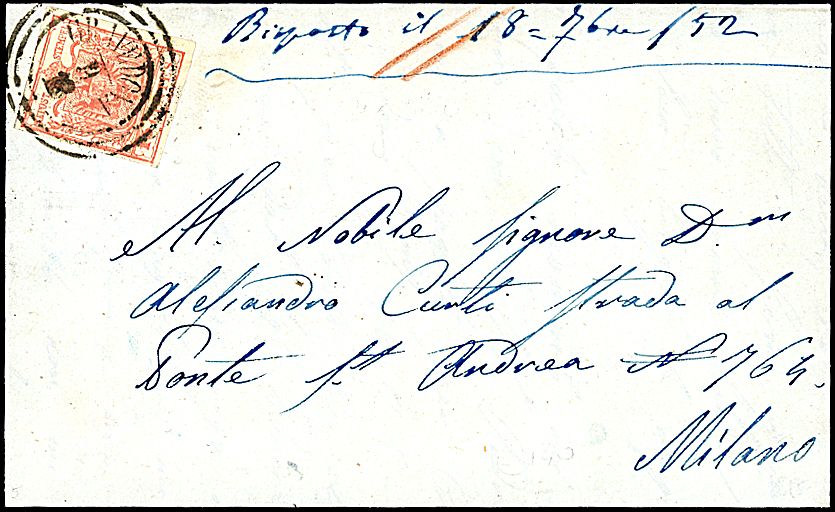 Risposto il 18 = 7bre / 52
Al. Nobile Signore D.
Alessandro Curti Strada al
Ponte S.t Andrea N 764.
Milano